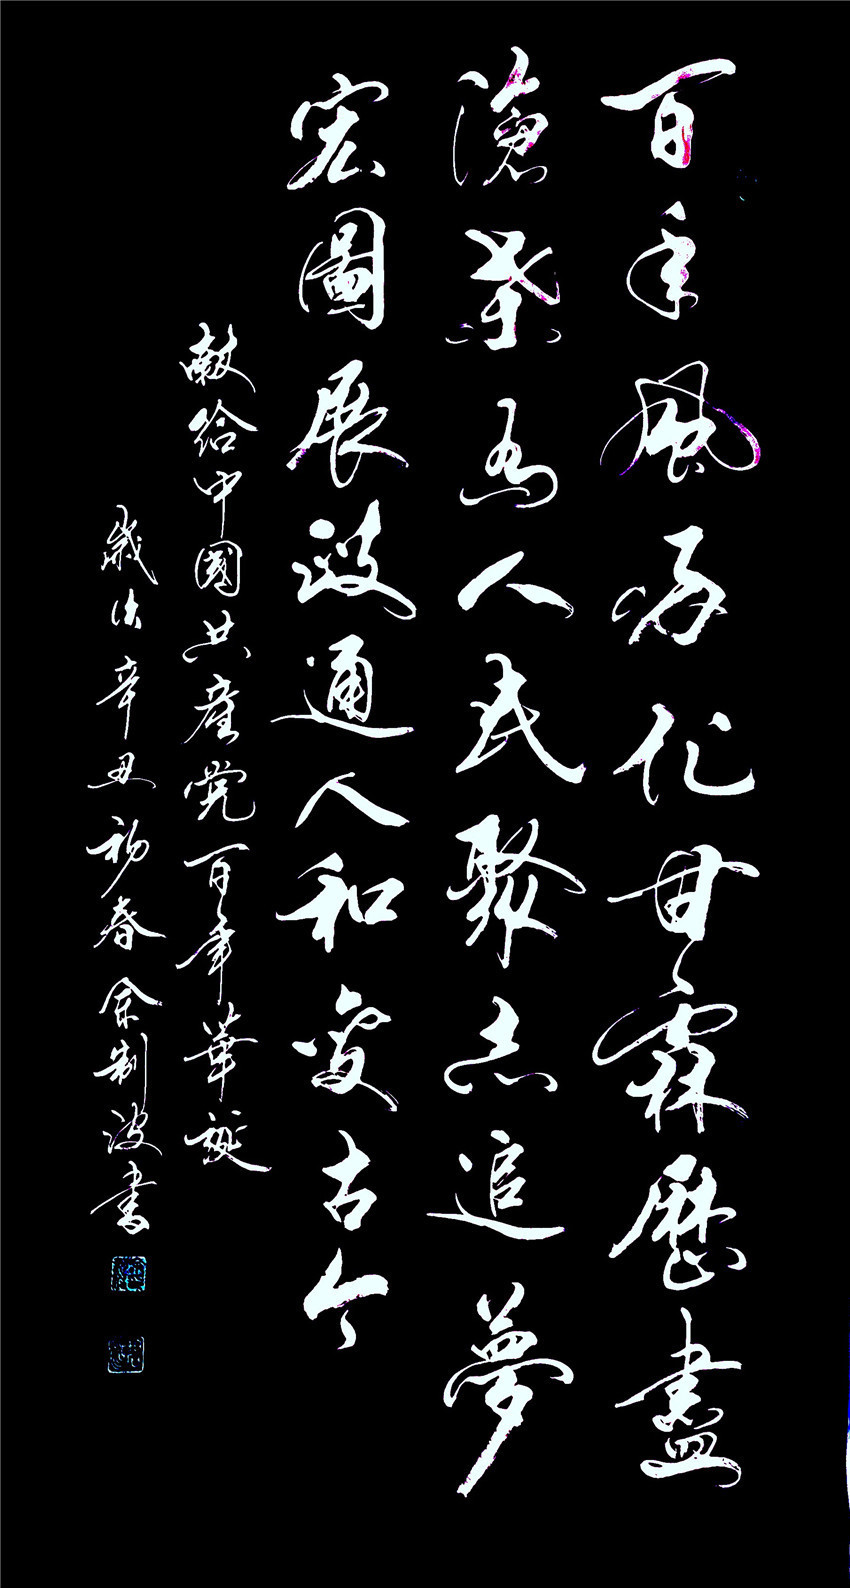 百年風雨化甘霖歷盡
滄桑為人民聚志追夢
宏圖展政通人和变古今
献給中國共產党百年華誕
歲次辛丑初春余制波書